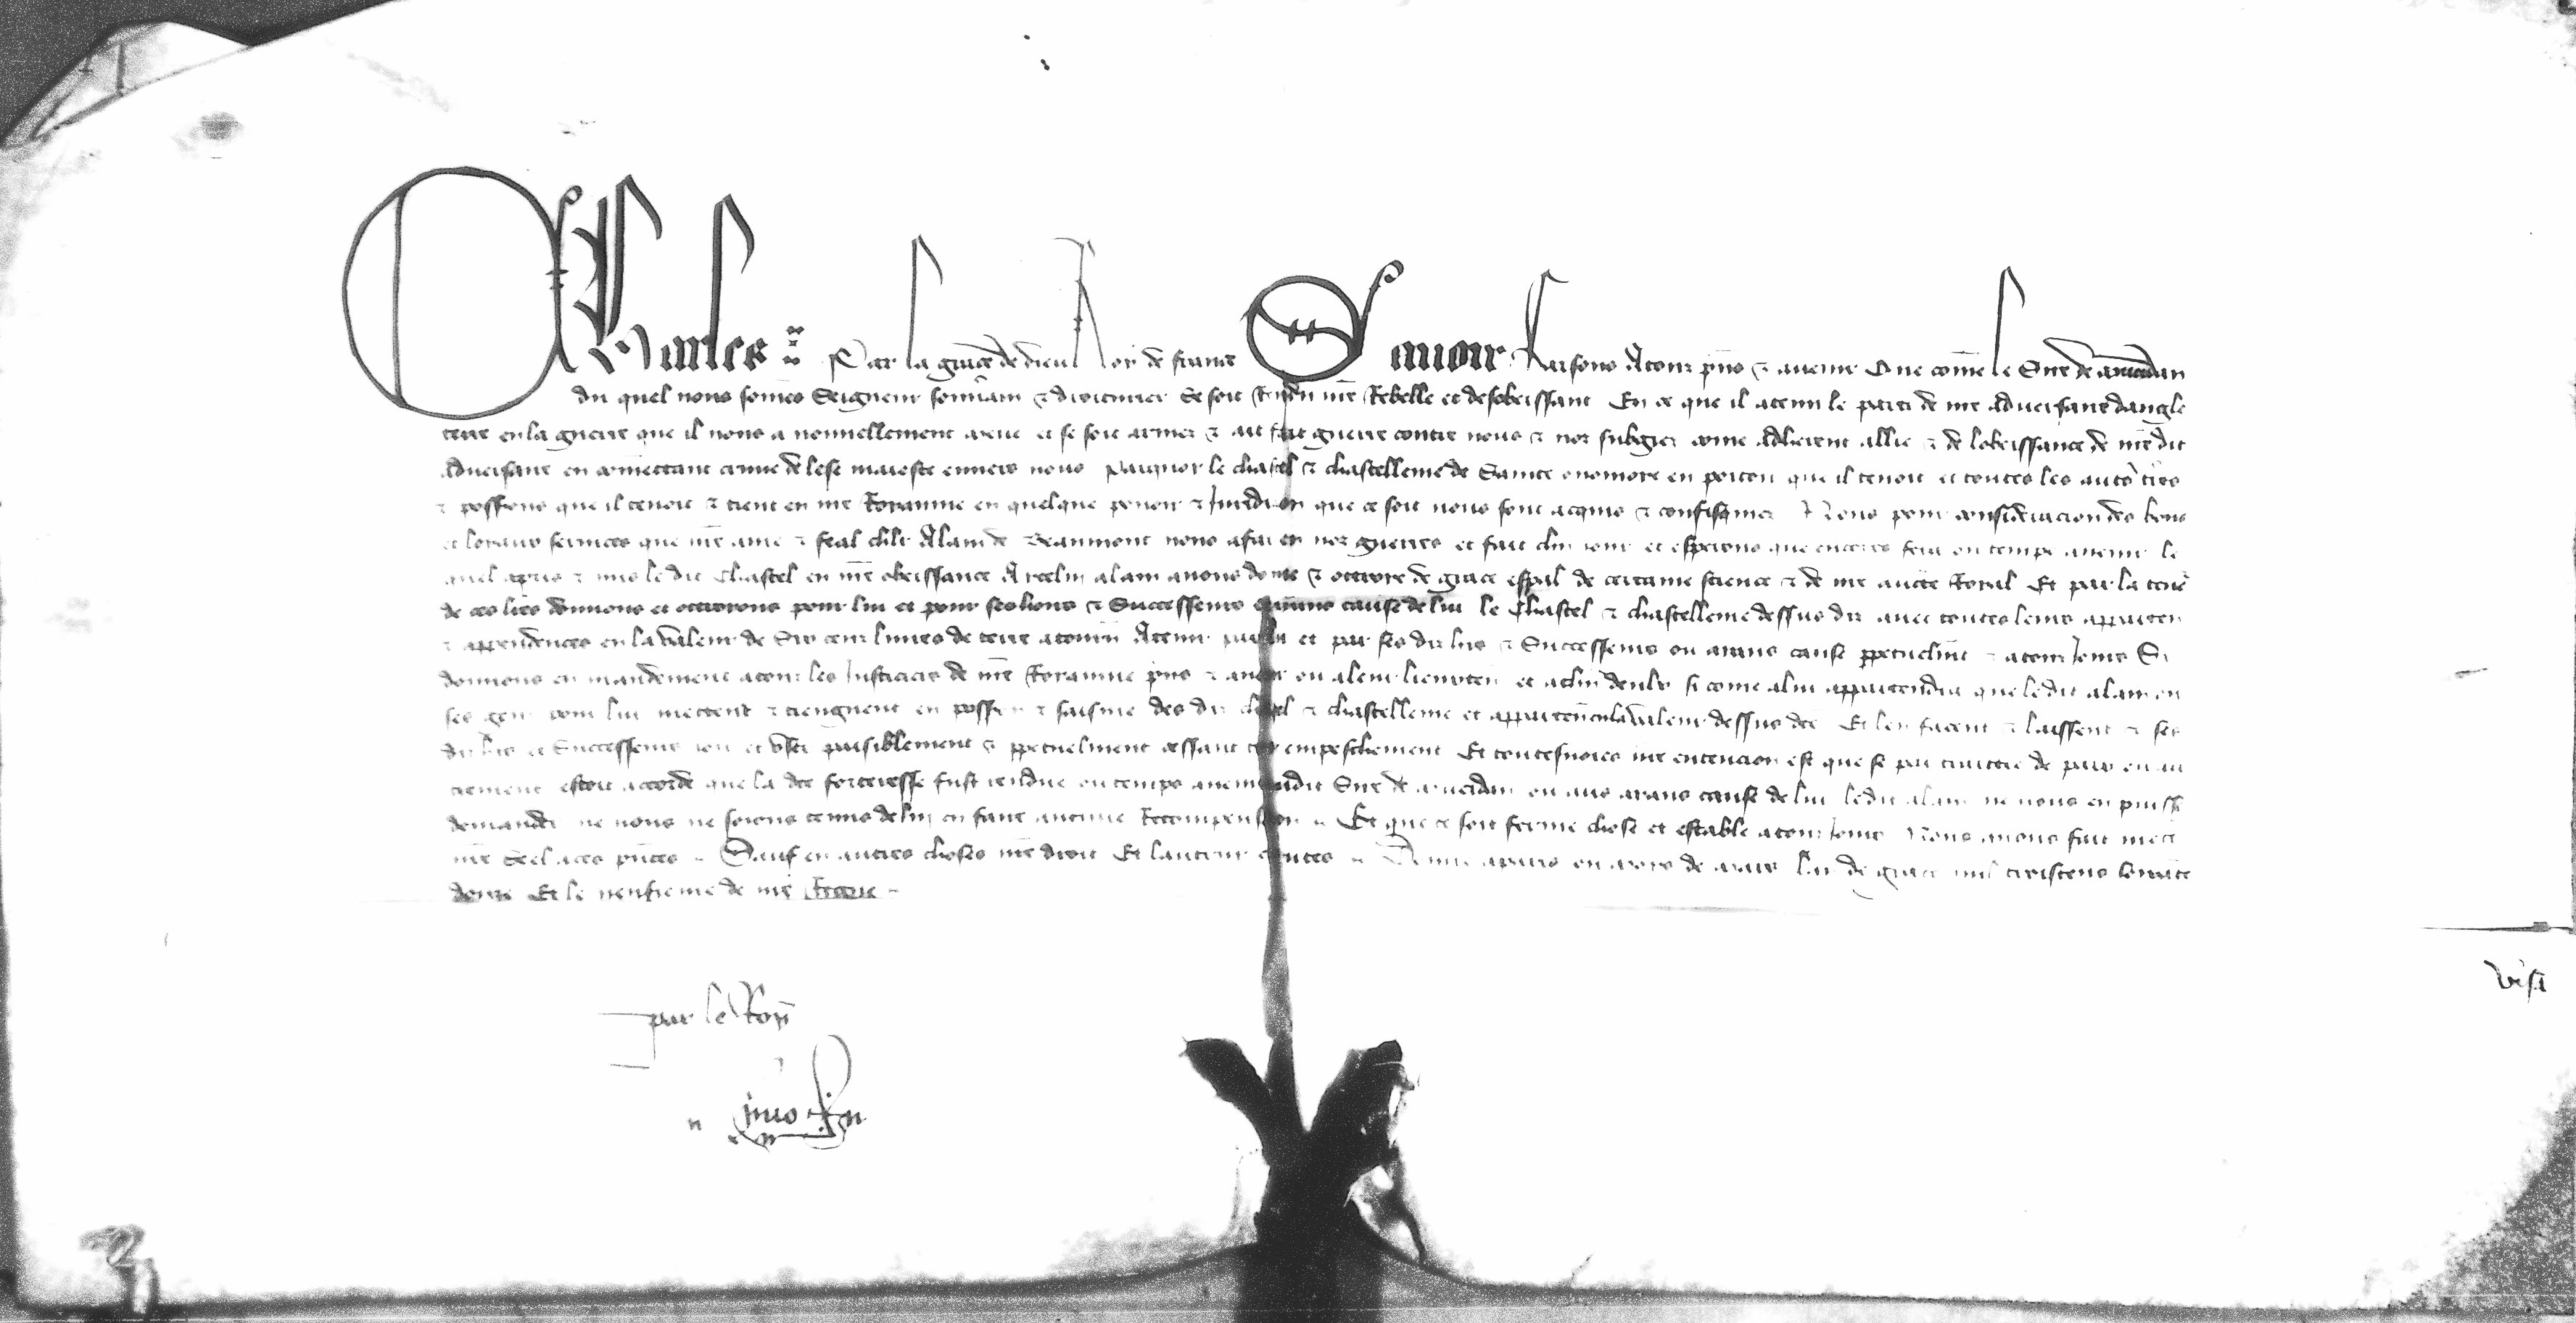 Charles Par la grace de dieu Roy de france Savoir Faisons A touz pñs & avenir Que cõme le Sire de mucidan
du quel nous somes Seigneur souvain & droicturier Se soit Rendu nre Rebelle et desobeissant En ce que il a tenu le parti de nre Adversaire dangle
terre en la guerre que il nous a nouvellement meue et se soit armez & ait fait guerre contre nous & noz subgiez come Adherent allie & de lobeissance de nre dit
Adversaire en cõmettant crime de lese maieste envers nous Parquoy le chastel & chastellenie de Sainte onomore en poitou que il tenoit et toutes les autrs trres
& possons que il tenoit & tient en nre Royaume en quelque povoir & Juridicion que ce soit nous sont acquis & confisquez Nous pour consideracion des bons
et loyaus services que nre ame & feal chlr Alain de Beaumont nous a fait en noz guerres et fait chn iour et esperons que encores fera ou temps avenir le
quel a pris & mis le dit Chastel en nre obeissance A ycelui alain avons donne & octroye de grace espal de certaine science & de nre aucte Royal Et par la ten
de ces lres donnons et octroyons pour lui et pour ses hoirs & Successeurs aians cause de lui le Chastel & chastellenie dessus diz avec toutes leurs apparten
& appendences en la valeur de Six cenz livres de terre a tourn A tenir par lui et par ses diz hrs & Successeurs ou aians cause ppetuelmt & a touz Jours Si
donnons en mandement a touz les Justiciers de nre Royaume pñs & avenir ou a leur lieuxten et a chun deulx si come a lui appartendra que le dit alain ou
ses genz pour lui mettent & tiengnent en posson & saisine des diz chastel & chastellenie et apparten en la valeur dessus dce Et len facent & laissent & ses
diz hrs et Successeurs joir et user paisiblement & ppetuelment cessant tout empeschement Et toutesvoies nre entencion est que se par traittie de paix ou au
trement estoit accorde que la dce forteresse fust rendue ou temps avenir audit Sire de mucidan ou aus aians cause de lui le dit alain ne nous en puisse
demander ne nous ne soions tenus de lui en faire aucune Recompensacion Et que ce soit ferme chose et estable a touz Jours Nous avons fait mettre
nre Seel a ces pñtes Sauf en autres choses nre droit Et lautrui en toutes Donne a paris ou moys de lan de grace mil troiscens soixante
douze Et le neufieme de nre Regne
par le Roy
visa